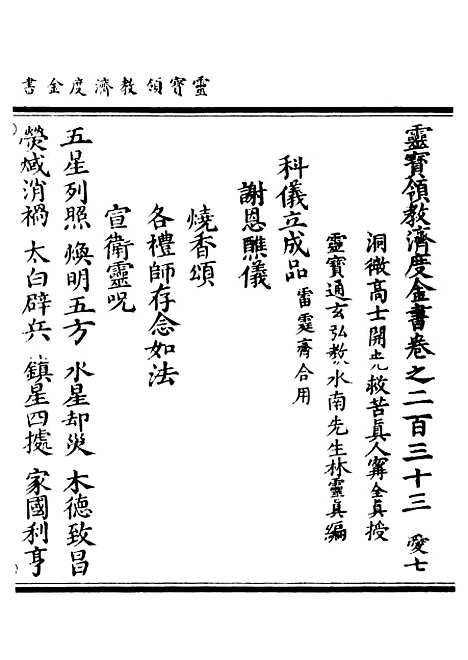 靈寶領教濟度金書
靈寶領教濟度金書卷之二百三十三　愛七
洞微高士開光救苦真人寗全真授
靈寶通玄弘教水南先生林靈真編
科儀立成品　雷霆齋合用
謝恩醮儀
燒香頌
各禮師存念如法
宣衛靈呪
五星列照　煥明五方　水星却災　木德致昌
熒惑消禍　太白辟兵　鎮星四據　家國利亨